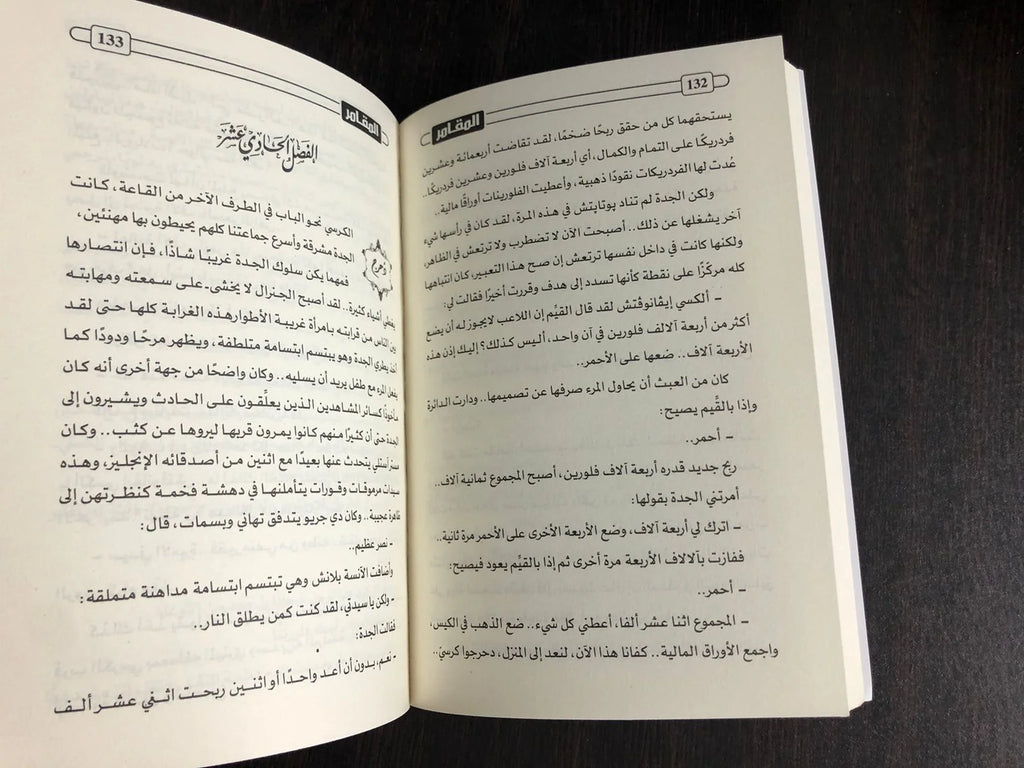 132
المقامر
يستحقهما كل من حقق ربحًا ضخمًا، لقد تقاضت أربعمائة وعشرين
فردريكًا على التمام والكمال، أي أربعة آلاف فلورين وعشرين فردريكًا..
عُدت لها الفردريكات نقودًا ذهبية، وأعطيت الفلورينات أوراقًا مالية..
ولكن الجدة لم تناد پوتابتش في هذه المرة، لقد كان في رأسها شيء
آخر يشغلها عن ذلك.. أصبحت الآن لا تضطرب ولا ترتعش في الظاهر،
ولكنها كانت في داخل نفسها ترتعش إن صح هذا التعبير، كان انتباهها
كله مركّزًا على نقطة كأنها تسدد إلى هدف وقررت أخيرًا فقالت لي:
– ألكسي إيڤانوڤتش لقد قال القيِّم إن اللاعب لايجوز له أن يضع
أكثر من أربعة آلالف فلورين في آن واحد، أليس كذلك؟ إليك إذن هذه
الأربعة آلاف.. ضعها على الأحمر..
كان من العبث أن يحاول المرء صرفها عن تصميمها.. ودارت الدائرة
وإذا بالقَّيم يصيح:
– أحمر..
ربح جديد قدره أربعة آلاف فلورين، أصبح المجموع ثمانية آلاف..
أمرتني الجدة بقولها:
– اترك لي أربعة آلاف، وضع الأربعة الأخرى على الأحمر مرة ثانية..
ففازت بآلالاف الأربعة مرة أخرى ثم إذا بالقيِّم يعود فيصيح:
– أحمر..
– المجموع اثنا عشر ألفا، أعطني كل شيء.. ضع الذهب في الكيس،
واجمع الأوراق المالية.. كفانا هذا الآن، لنعد إلى المنزل، دحرجوا كرسيّ..
133
المقامر
الفصل الحادي عشر
الكرسي نحو الباب في الطرف الآخر من القاعة، كانت
الجدة مشرقة وأسرع جماعتنا كلهم يحيطون بها مهنئين،
فمهما يكن سلوك الجدة غريبًا شاذًا، فإن انتصارها
يغطي أشياء كثيرة.. لقد أصبح الجنرال لا يخشى على سمعته ومهابته
بين الناس من قرابته بامرأة غريبة الأطوار هذه الغرابة كلها حتى لقد
أخذ يطري الجدة وهو يبتسم ابتسامة متلطفة، ويظهر مرحًا ودودًا كما
يفعل المرء مع طفل يريد أن يسليه.. وكان واضحًا من جهة أخرى أنه كان
مأخوذًا كسائر المشاهدين الذين يعلّقون على الحادث ويشيرون إلى
الجدة حتى أن كثيرًا منهم كانوا يمرون قربها ليروها عن كثب.. وكان
مستر آستلي يتحدث عنها بعيدًا مع اثنين من أصدقائه الإنجليز، وهذه
سيدات مرموقات وقورات يتأملنها في دهشة فخمة كنظرتهن إلى
ظاهرة عجيبة.. وكان دي جريو يتدفق تهاني وبسمات، قال:
- نصر عظيم..
وأضافت الآنسة بلانش وهي تبتسم ابتسامة مداهنة متملقة:
- ولكن يا سيدتي، لقد كنت كمن يطلق النار..
فقالت الجدة:
- نعم، بدون أن أعد واحدًا أو اثنين ربحت اثني عشر ألف